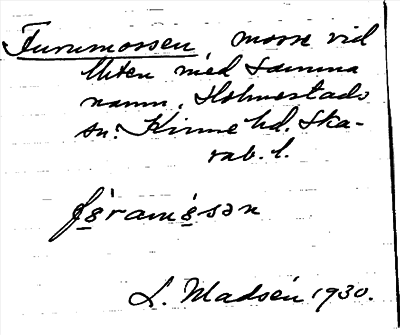 Furumossen, mosse vid
liten med samma
namn. Holmestads
sn. Kinne hd. Ska-
rab. l.
L. Madsén 1930.